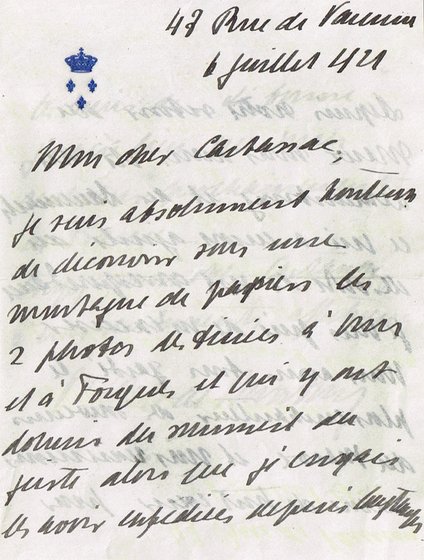 47 Rue de Varenne
6 Juillet 1921
Mon cher Carbassac,
je suis absolument honteux
de découvrir sous une
montagne de papiers les
2 photos destinées à vous
et à Forques et qui y ont
dormi du moment du
juste alors que je croyais
les avoir expédiées depuis longtemps